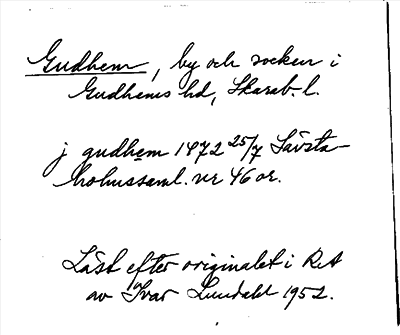 Gudhem, by och socken i
Gudhems hd, Skarab. l.
j gudhem 1472 25/7 Sävsta-
holmssaml. nr 46 or.
Läst efter originalet i RA
av Ivar Lundahl 1952.